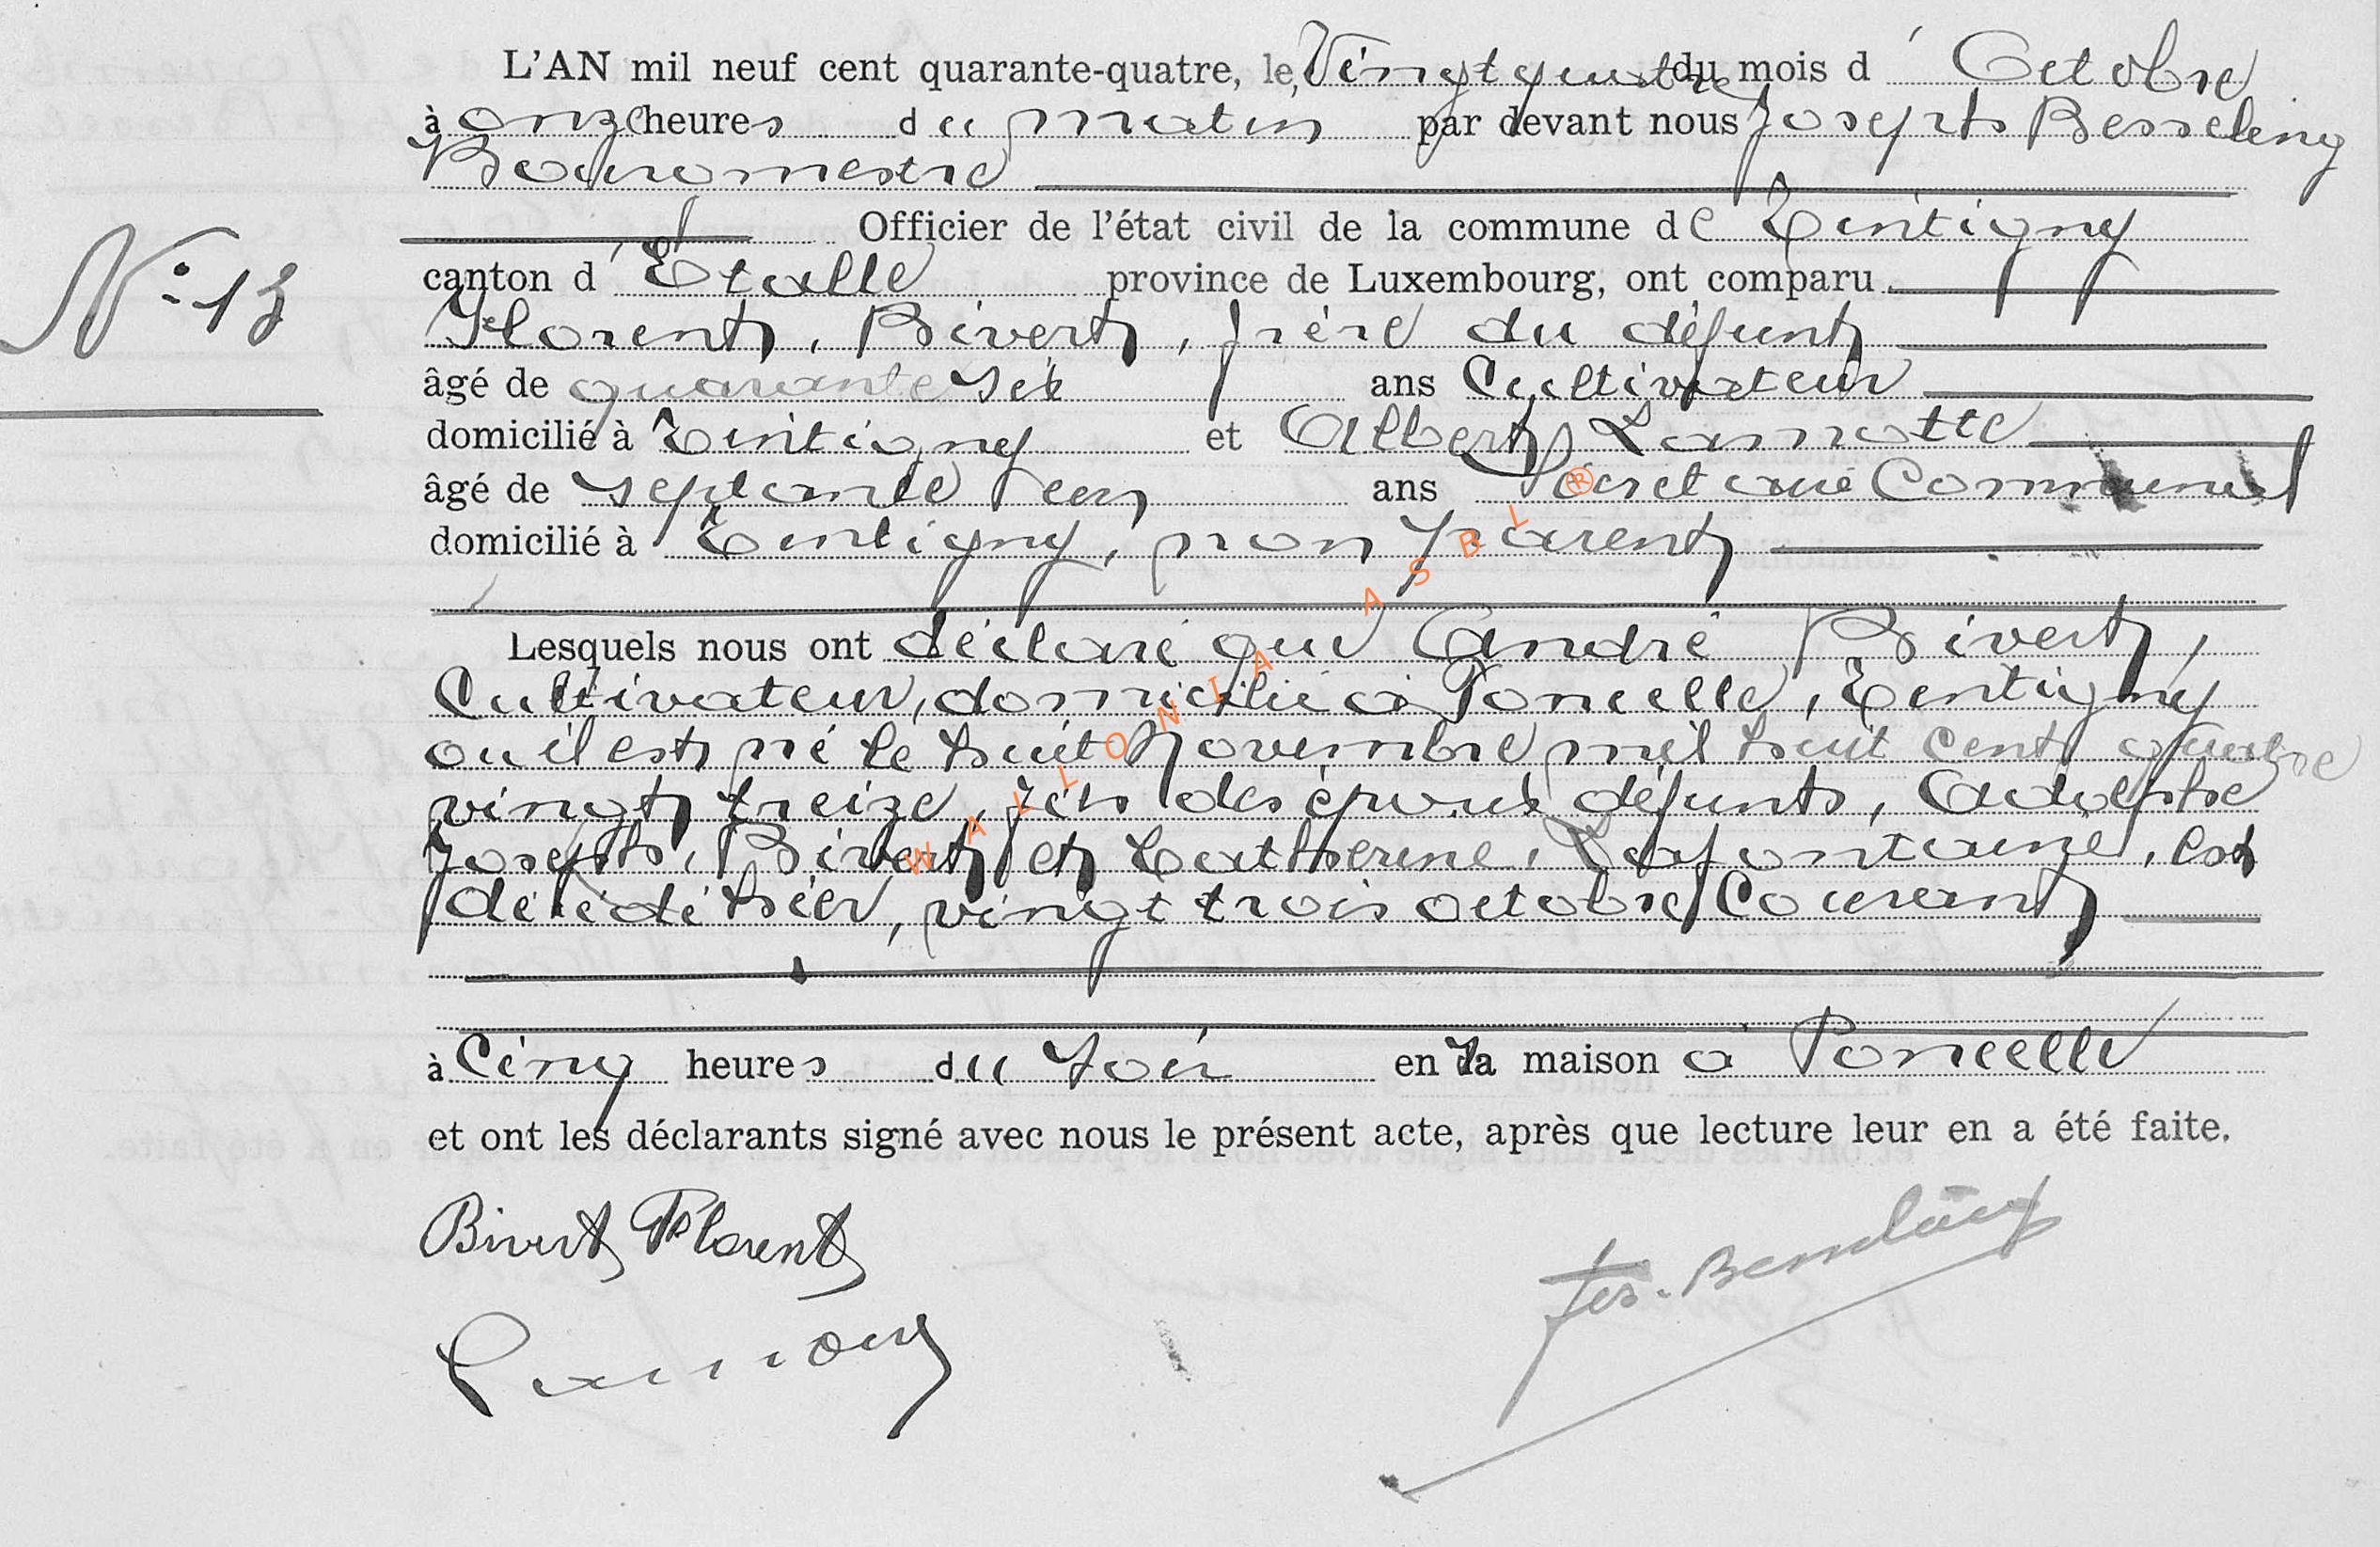 L'AN mil neuf cent quarante-quatre, le Vingt quatre du mois d' Octobre
à onze heures du matin par devant nous Joseph Besseling
Bourgmestre
Officier de l'état civil de la commune de Tintigny
N° 13
canton d' Etalle province de Luxembourg, ont comparu
Florent, Bivert, frère du défunt
âgé de quarante six ans Cultivateur
domicilié à Tintigny et Albert Lamotte
âgé de septante un ans Secrétaire Communal
domicilié à Tintigny, non parent
Lesquels nous ont déclaré que André Bivert,
Cultivateur, domicilié à Poncelle, Tintigny
où il est né le huit Novembre mil huit cent quatre
vingt treize, fils des époux défunts, Adolphe
Joseph, Bivert et Catherine, Lafontaine, est
décédé hier, vingt trois octobre Courant
à Cinq heures du soir en sa maison à Poncelle
et ont les déclarants signé avec nous le présent acte, après que lecture leur en a été faite.
Bivert Florent
Jos. Besseling
WALLONIA ASBL ®